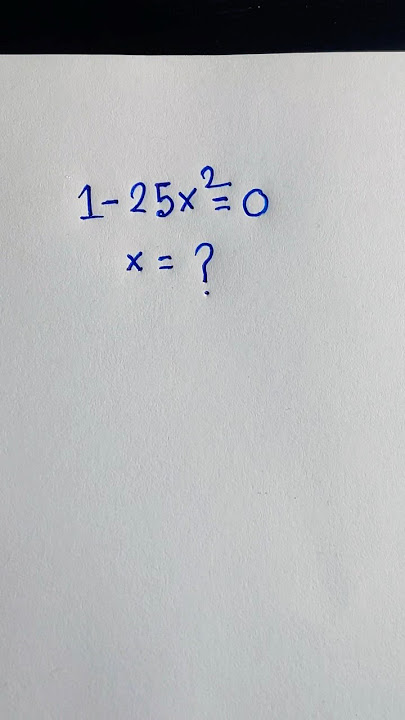 1-25x²=0
x = ?